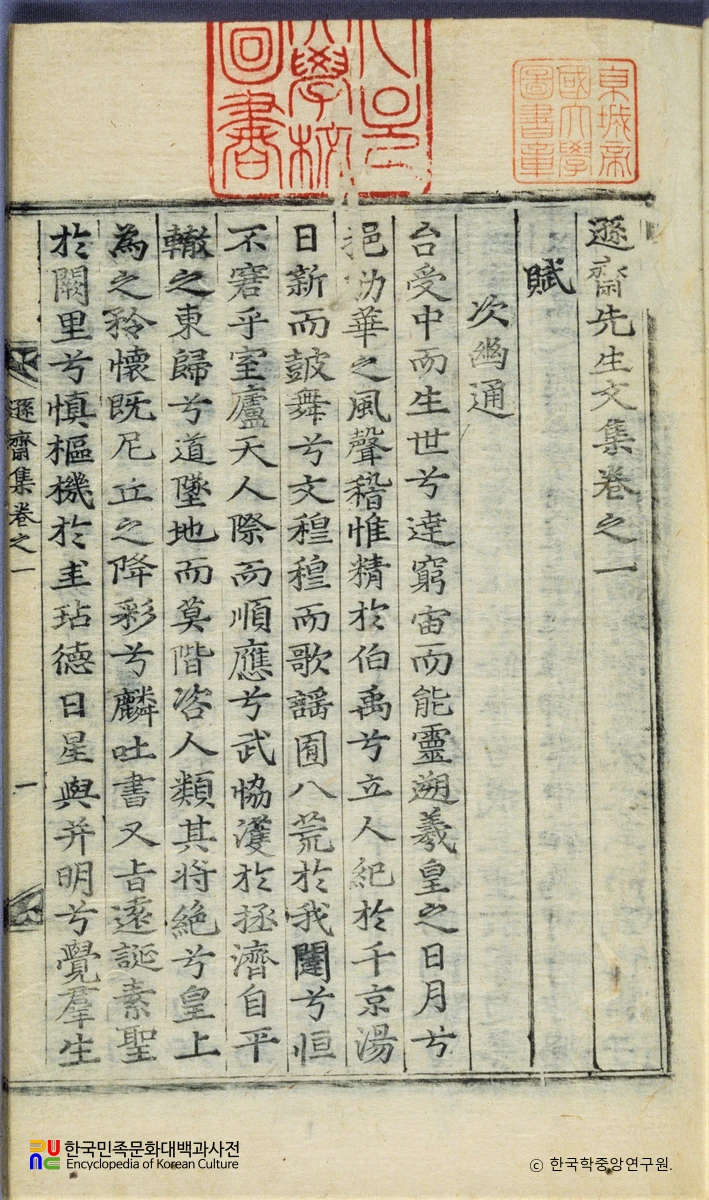 京城帝國大學圖書章
大學校
圖書
遜齋先生文集卷之一
賦
次幽通
台受中而生世兮達窮宙而能靈遡羲皇之日月兮
挹勛華之風聲稽惟精於伯禹兮立人紀於千京湯
日新而皷舞兮文穆穆而歌謠囿八荒於我闥兮恒
不窘乎室廬天人際而順應兮武恊濩於拯濟自平
轍之東歸兮道墜地而莫階咨人類其將絶兮皇上
為之矜懷既尼丘之降彩兮麟吐書又旨遠誕素聖
於闕里兮慎樞機於圭玷德日星與并明兮覺羣生
遜齋集卷之一
一
한국민족문화대백과사전
Encyclopedia of Korean Culture
ⓒ 한국학중앙연구원.